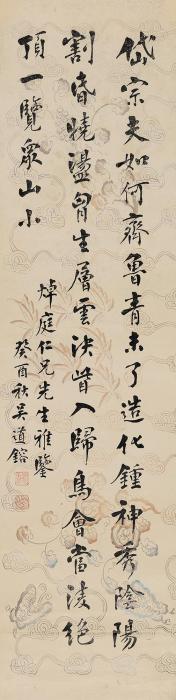 岱宗夫如何齊魯青未了造化鍾神秀陰陽
割昏曉盪胷生層雲決眥入歸鳥會當凌絕
頂一覽眾山小
焯庭仁兄先生雅鑒
癸酉秋吳道鎔